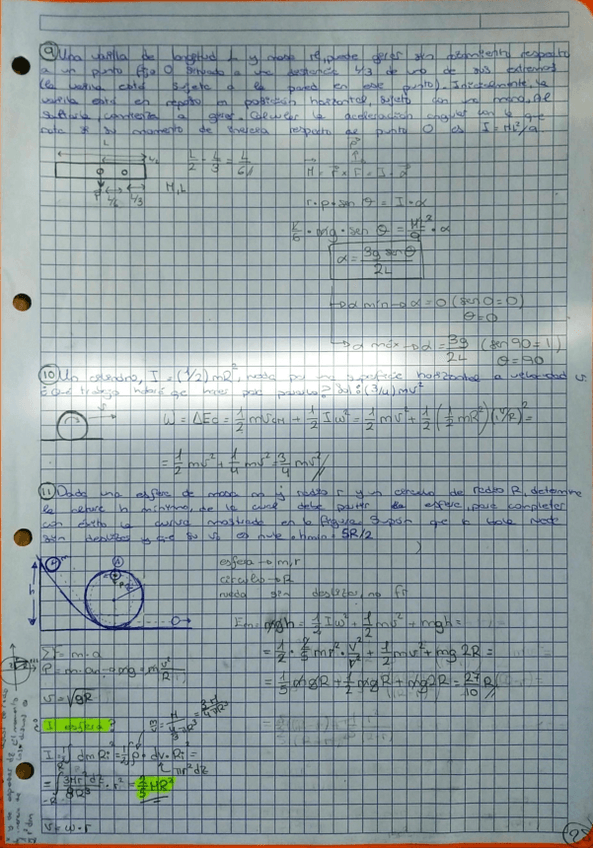 9) Una varilla de longitud L y masa M, puede girar sin rozamiento respecto
a un punto fijo O situado a una distancia L/3 de uno de sus extremos
(la varilla está sujeta a la pared en ese punto). Inicialmente, la
varilla está en reposo en posición horizontal, sujeta con una mano, al
soltarla comienza a girar. Calcular la aceleración angular con la que
rota si su momento de inercia respecto de punto O es I = ML²/9.
L
L/2 - L/3 = L/6
M, L
L/6 L/3
M = r x F = I · α
r · p · sen θ = I · α
L/6 · mg · sen θ = M/9 L² · α
α = 3g senθ / 2L
α min → α = 0 (sen 0 = 0)
θ = 0
α máx → α = 3g/2L (sen 90 = 1)
θ = 90
10) Un cilindro, I = (1/2) mR², rueda por una superficie horizontal a velocidad v.
¿Qué trabajo habrá que hacer para pararlo? Sol: (3/4) mv²
W = ΔEc = 1/2 m v²CM + 1/2 I ω² = 1/2 mv² + 1/2 (1/2 mR²)(v/R)² =
= 1/2 mv² + 1/4 mv² = 3/4 mv² //
11) Dada una esfera de masa m y radio r y un círculo de radio R, determine
la altura h mínima, de la cual debe partir la esfera, para completar
con éxito la curva mostrada en la figura. Supón que la bola rueda
sin deslizar y que su v₀ es nula. hmin = 5R/2
esfera → m, r
círculo → R
rueda sin deslizar, no fr
Em = mgh = 1/2 Iω² + 1/2 mv² + mgh =
= 1/2 · 2/5 mr² · v²/r² + 1/2 mv² + mg 2R =
= 1/5 mgR + 1/2 mgR + mg2R = 27/10 R //
ΣF = m · a
P = m · an → mg = m v²/R
v = √gR
¿I esfera?
I = ∫ dm Ri² = 1/2 ∫ ρ · dv · Ri² =
πr² dz
= 2/5 MR²
v = ω · r
25